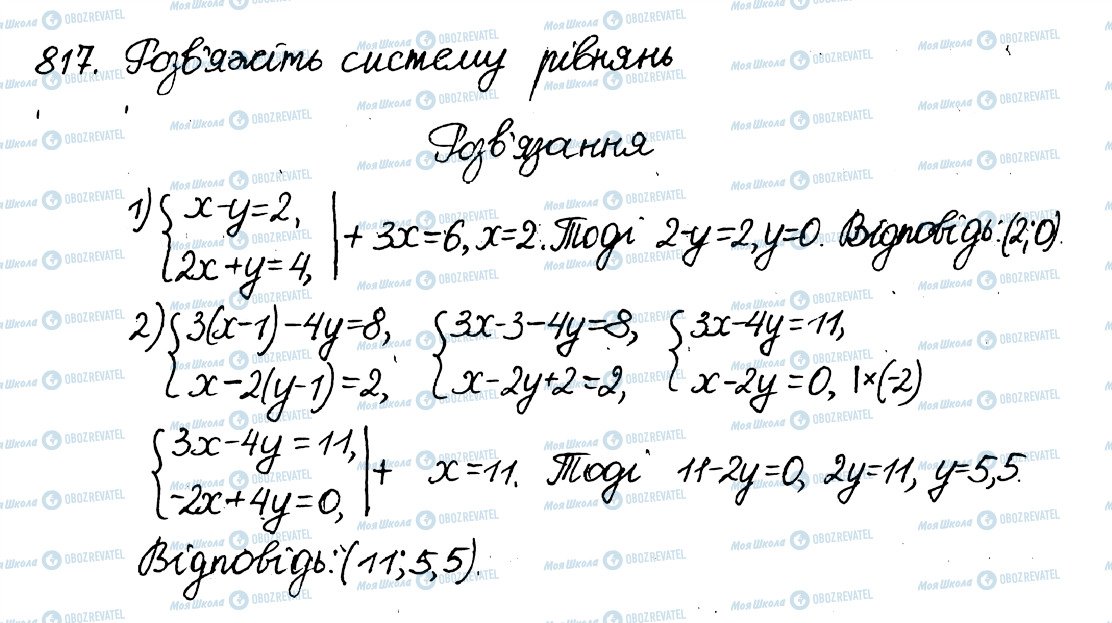 817. Розв'яжіть систему рівнянь
Розв'язання
1) { x-y=2, 2x+y=4, | + 3x=6, x=2. Тоді 2-y=2, y=0. Відповідь: (2;0).
2) { 3(x-1)-4y=8, x-2(y-1)=2, { 3x-3-4y=8, x-2y+2=2, { 3x-4y=11, x-2y=0, |×(-2)
{ 3x-4y=11, -2x+4y=0, | + x=11. Тоді 11-2y=0, 2y=11, y=5,5.
Відповідь: (11; 5,5).
Моя Школа OBOZREVATEL